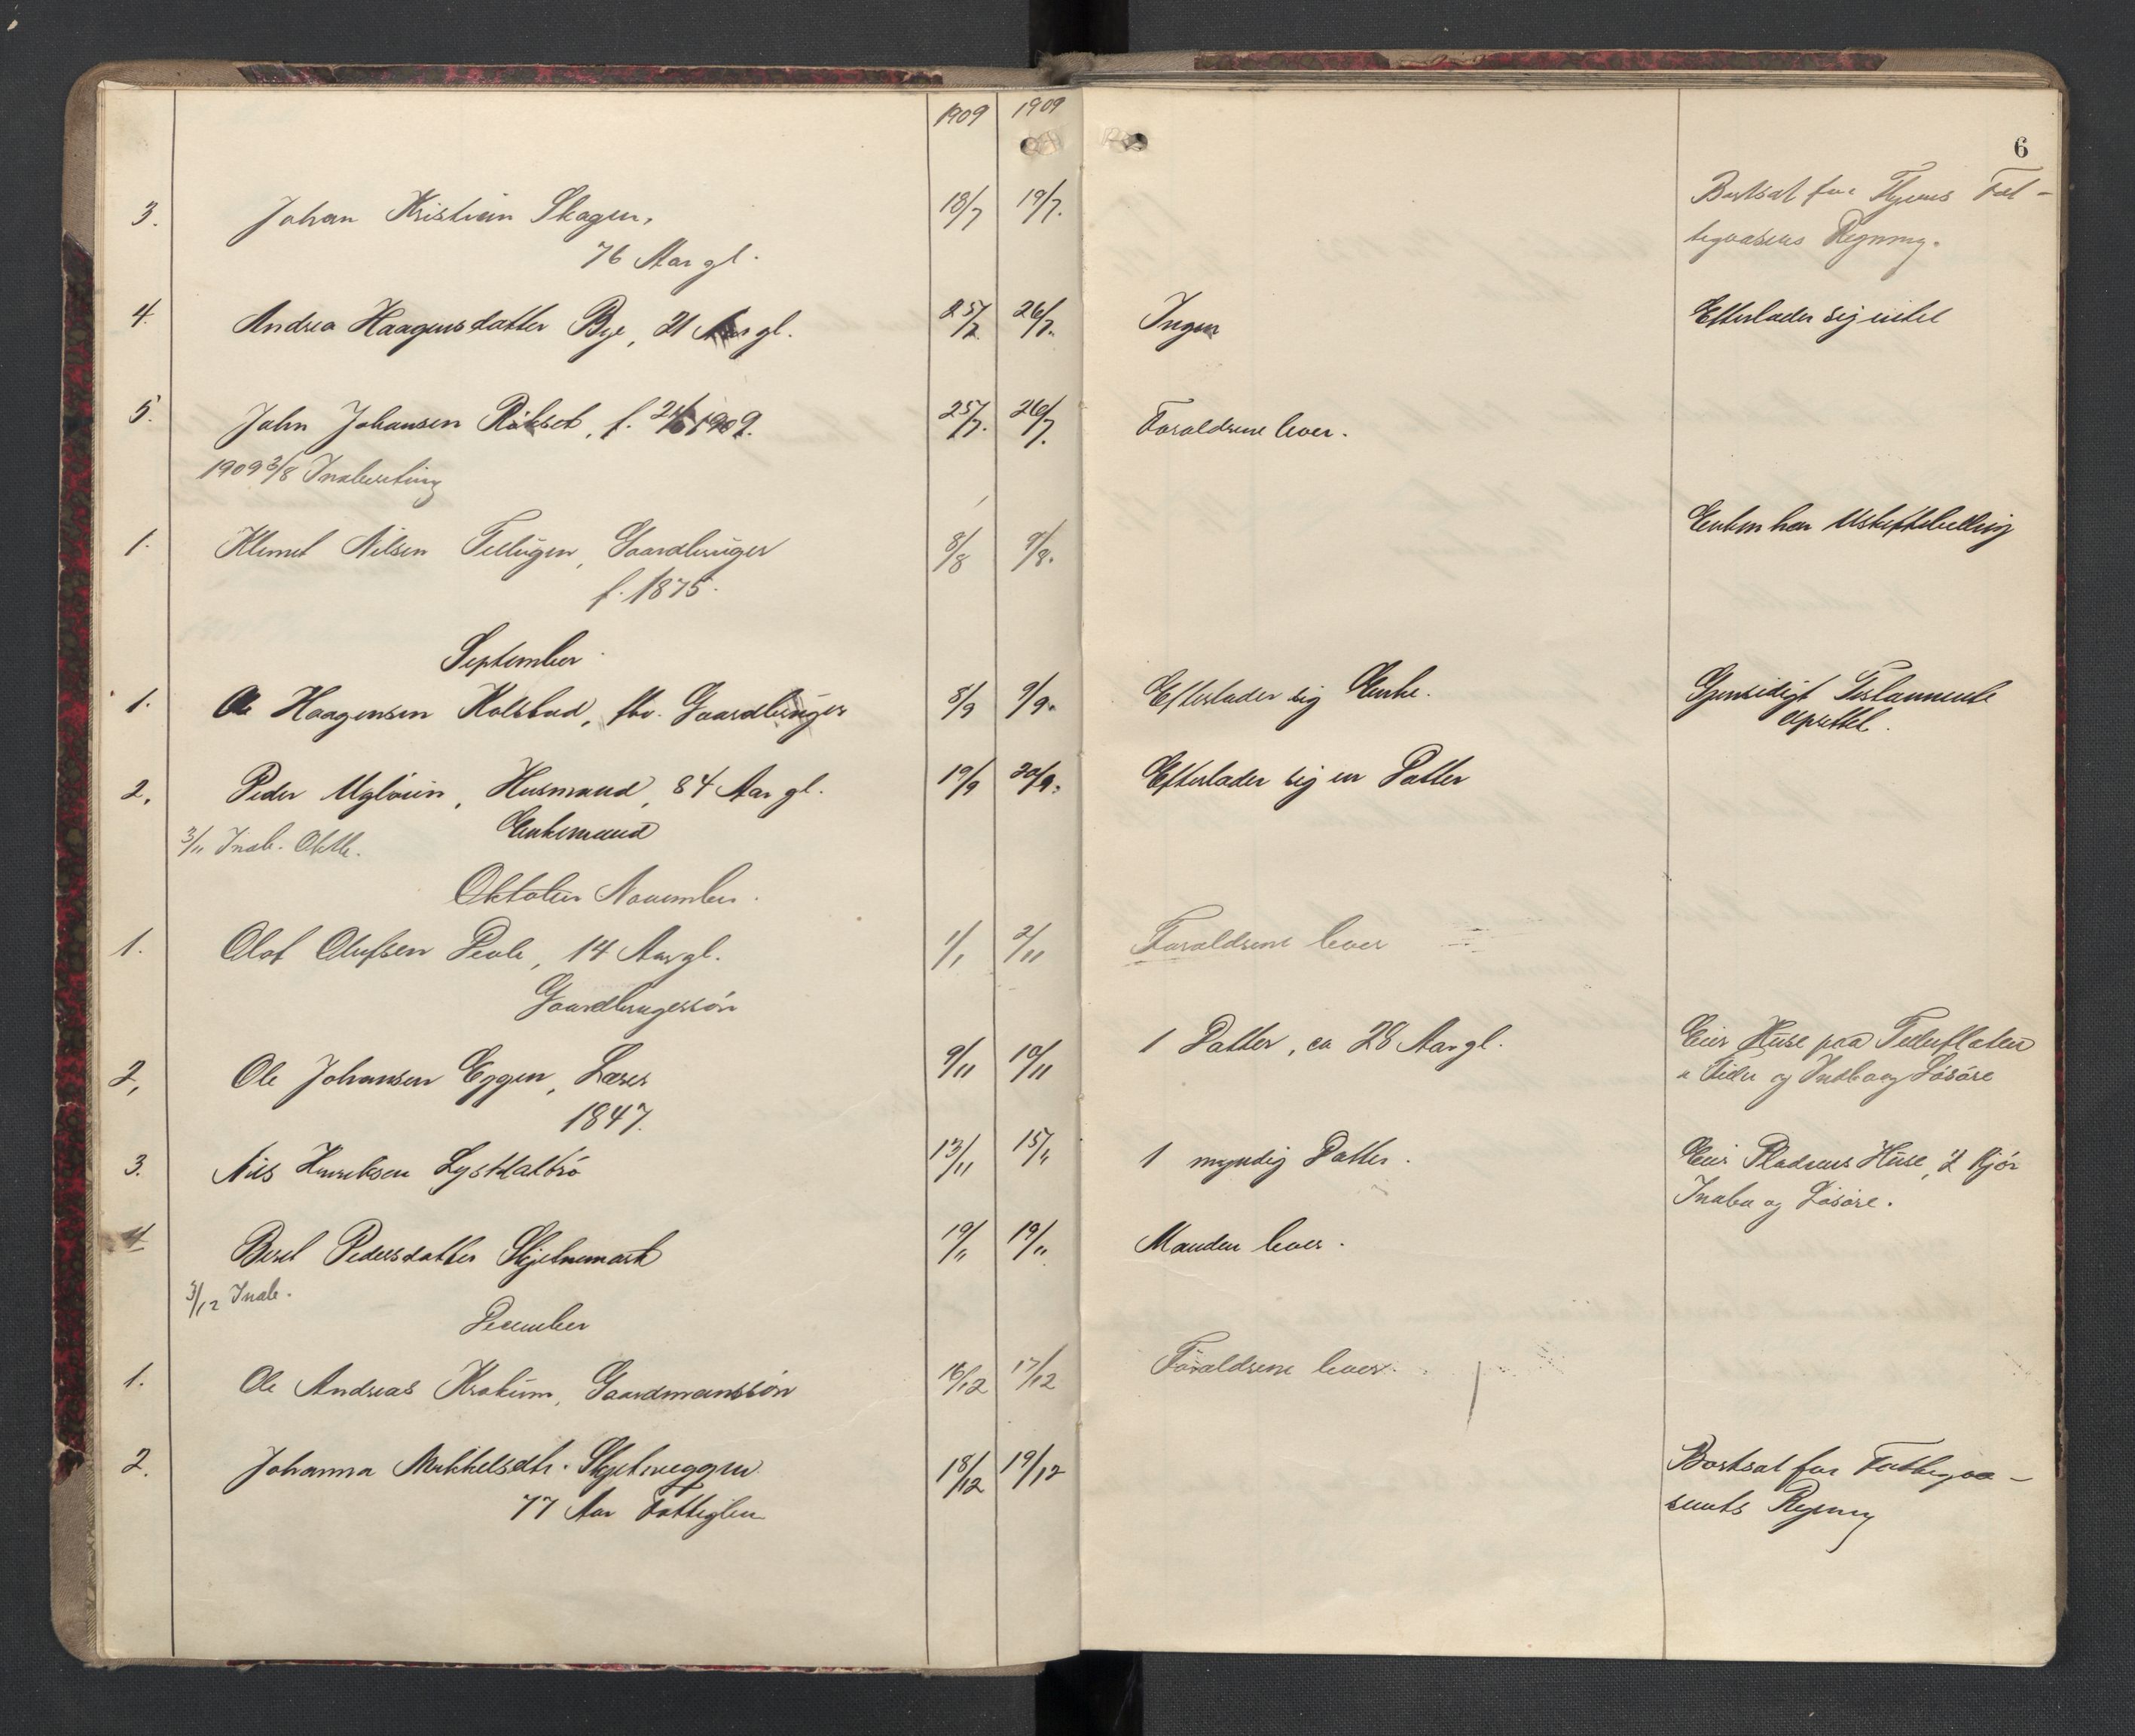 1909 1909
6
3. Johan Kristian Skagen, 18/7 19/7. Bortsat for Flyens Fat-
76 Aar gl. tigvæsens Regning.
4. Andrea Haagensdatter Bye, 21 Aar gl. 25/7 26/7. Ingen Efterlader sig intet
5. John Johansen Rökset, f. 1909. 25/7. 26/7. Forældrene lever.
1909 3/8 Indberetning
Enken har Uskiftebevilling
1. Klemet Nilsen Tellugen, Gaardbruger 8/8 9/8.
f. 1875.
September
1. Ole Haagensen Kolstad, fhv. Gaardbruger 8/9 9/9. Efterlader sig Enke. Gjensidigt Testamente
oprettet.
2. Peder Mylöien, Husmand, 84 Aar gl. 19/9 20/9. Efterlader sig en Datter
Enkemand
3/11 Indb. Oktb.
Oktober November.
1. Olof Olufsen Devle, 14 Aar gl. 1/1 2/11 Forældrene lever
Gaardbrugersön
2, Ole Johansen Eggen, Lærer 9/11 10/11 1 Datter, ca 28 Aar gl. Eier Huse paa
1847. og Indbo og Lösöre
3. Nils Henriksen Lystdalbrö 13/11 15/11 1 myndig Datter. Eier Pladsens Huse, 2 Kjör
Indbo og Lösöre.
4 Beret Pedersdatter Skjetnemark 19/11 19/11 Manden lever.
3/12 Indb.
December
1. Ole Andreas Krokum, Gaardmandssön 16/12 17/12 Forældrene lever.
2. Johanna Mikkelsdtr. Skjetneeggen 18/12 19/12 Bortsat for Fattigvæ-
77 Aar Fattiglem senets Regning